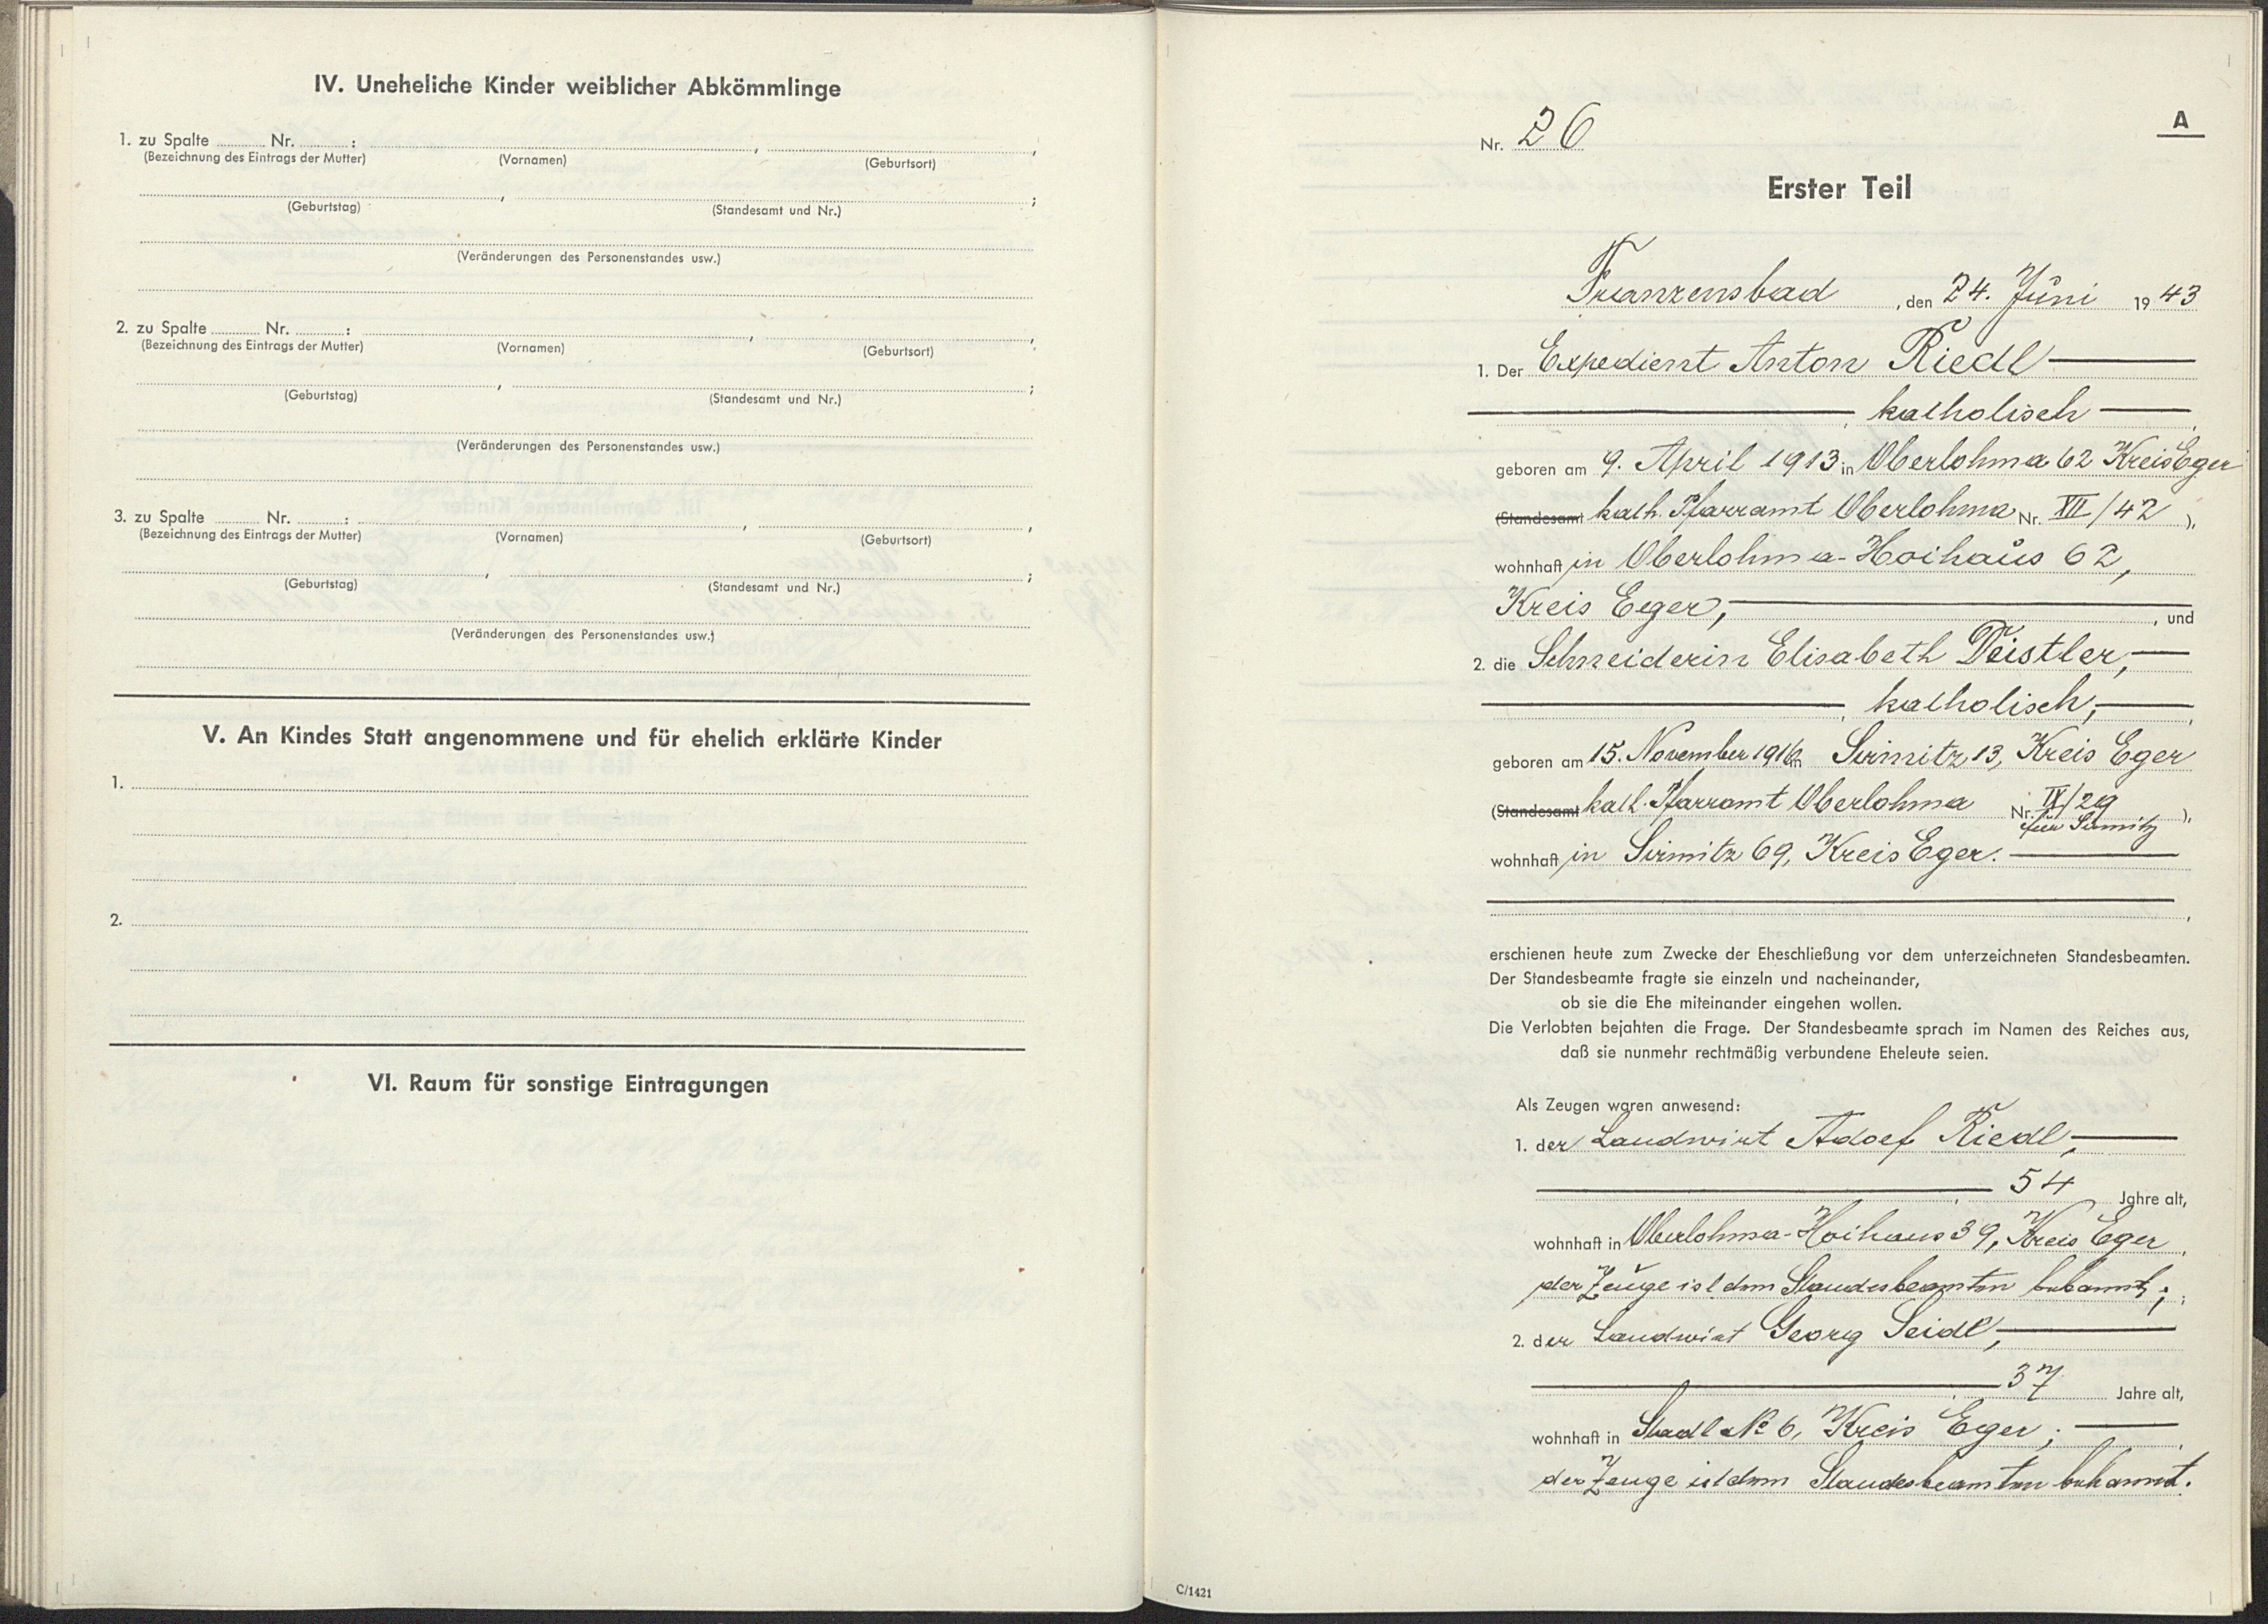 IV. Uneheliche Kinder weiblicher Abkömmlinge
1. zu Spalte Nr. : , ,
(Bezeichnung des Eintrags der Mutter) (Vornamen) (Geburtsort)
, ;
(Geburtstag) (Standesamt und Nr.)
(Veränderungen des Personenstandes usw.)
2. zu Spalte Nr. : , ,
(Bezeichnung des Eintrags der Mutter) (Vornamen) (Geburtsort)
, ;
(Geburtstag) (Standesamt und Nr.)
(Veränderungen des Personenstandes usw.)
3. zu Spalte Nr. : , ,
(Bezeichnung des Eintrags der Mutter) (Vornamen) (Geburtsort)
, ;
(Geburtstag) (Standesamt und Nr.)
(Veränderungen des Personenstandes usw.)
V. An Kindes Statt angenommene und für ehelich erklärte Kinder
1.
2.
VI. Raum für sonstige Eintragungen
A
Nr. 26
Erster Teil
Franzensbad, den 24. Juni 1943
1. Der Expedient Anton Riedl
, katholisch,
geboren am 9. April 1913 in Oberlohma 62 Kreis Eger
(Standesamt kath. Pfarramt Oberlohma Nr. VII/42),
wohnhaft in Oberlohma-Hoihaus 62,
Kreis Eger, , und
2. die Schneiderin Elisabeth Deistler,
, katholisch,
geboren am 15. November 1916 in Sirmitz 13, Kreis Eger
(Standesamt kath. Pfarramt Oberlohma Nr. IV/29
für Sirmitz),
wohnhaft in Sirmitz 69, Kreis Eger.
,
erschienen heute zum Zwecke der Eheschließung vor dem unterzeichneten Standesbeamten.
Der Standesbeamte fragte sie einzeln und nacheinander,
ob sie die Ehe miteinander eingehen wollen.
Die Verlobten bejahten die Frage. Der Standesbeamte sprach im Namen des Reiches aus,
daß sie nunmehr rechtmäßig verbundene Eheleute seien.
Als Zeugen waren anwesend:
1. der Landwirt Adolf Riedl,
, 54 Jahre alt,
wohnhaft in Oberlohma-Hoihaus 39, Kreis Eger,
der Zeuge ist dem Standesbeamten bekannt;
2. der Landwirt Georg Seidl,
, 37 Jahre alt,
wohnhaft in Stadl No 6, Kreis Eger;
der Zeuge ist dem Standesbeamten bekannt.
C/1421